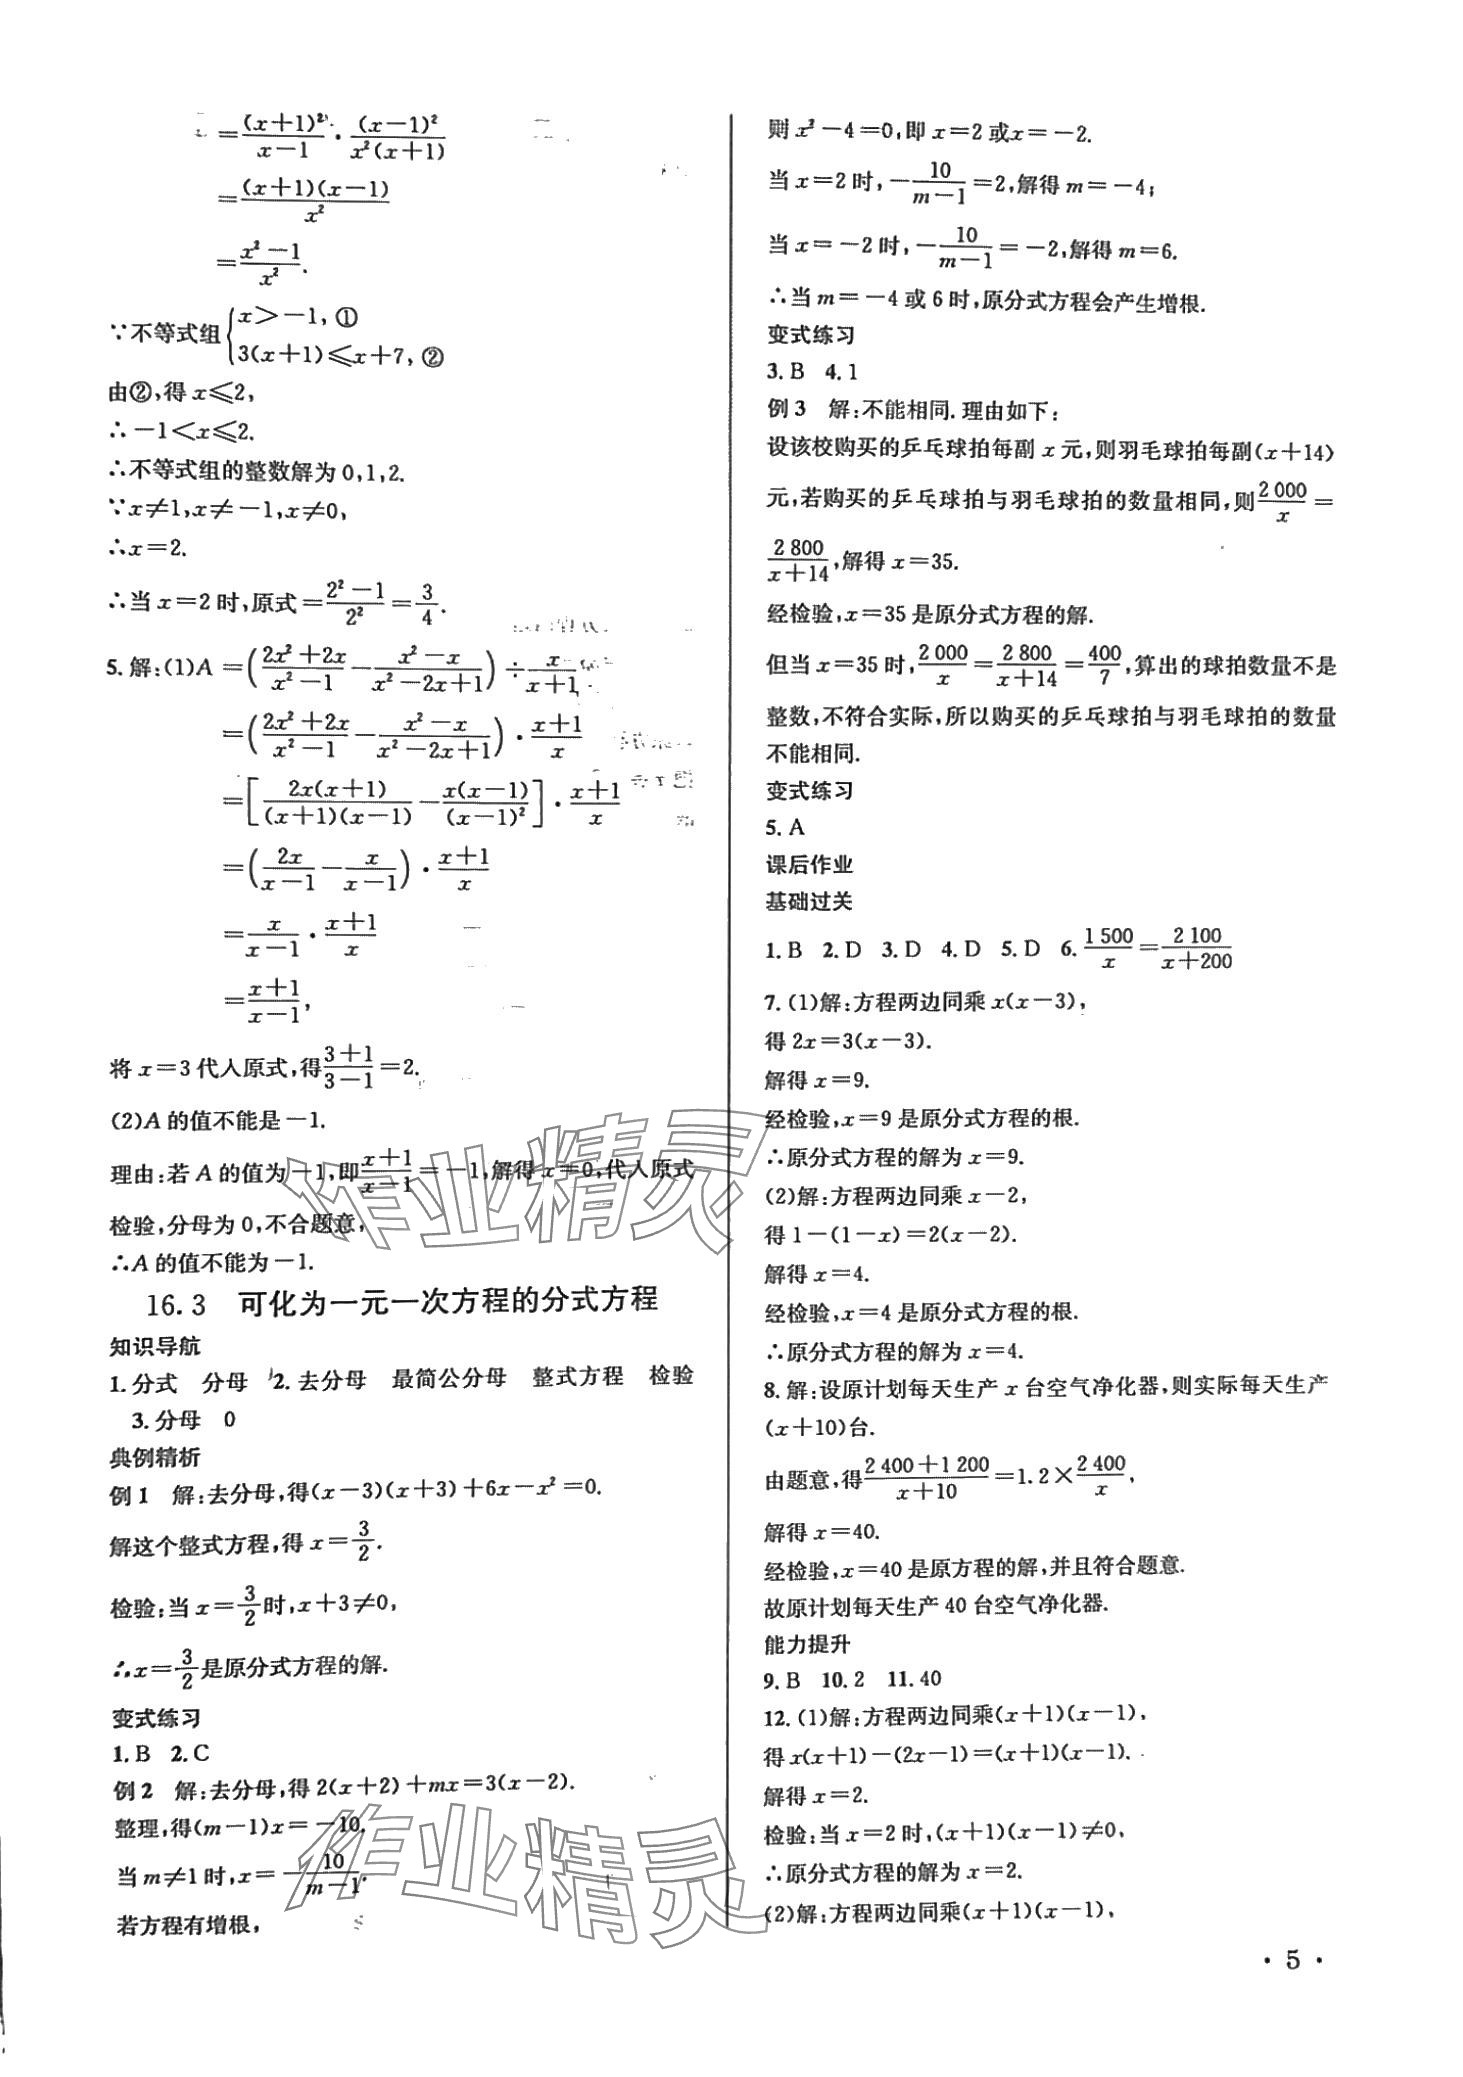 =(x+1)²/(x-1)·(x-1)²/(x²(x+1))
=(x+1)(x-1)/x²
=(x²-1)/x².
∵不等式组{x>-1,①
3(x+1)≤x+7,②
由②,得 x≤2,
∴-1<x≤2.
∴不等式组的整数解为 0,1,2.
∵x≠1,x≠-1,x≠0,
∴x=2.
∴当 x=2 时,原式=(2²-1)/2²=3/4.
5.解:(1)A=((2x²+2x)/(x²-1)-(x²-x)/(x²-2x+1))÷x/(x+1)
=((2x²+2x)/(x²-1)-(x²-x)/(x²-2x+1))·(x+1)/x
=[2x(x+1)/((x+1)(x-1))-x(x-1)/(x-1)²]·(x+1)/x
=(2x/(x-1)-x/(x-1))·(x+1)/x
=x/(x-1)·(x+1)/x
=(x+1)/(x-1),
将 x=3 代入原式,得(3+1)/(3-1)=2.
(2)A 的值不能是-1.
理由:若 A 的值为-1,即(x+1)/(x-1)=-1,解得 x=0,代入原式
检验,分母为 0,不合题意,
∴A 的值不能为-1.
16.3 可化为一元一次方程的分式方程
知识导航
1.分式 分母 2.去分母 最简公分母 整式方程 检验
3.分母 0
典例精析
例1 解:去分母,得(x-3)(x+3)+6x-x²=0.
解这个整式方程,得 x=3/2.
检验:当 x=3/2时,x+3≠0,
∴x=3/2是原分式方程的解.
变式练习
1.B 2.C
例2 解:去分母,得 2(x+2)+mx=3(x-2).
整理,得(m-1)x=-10.
当 m≠1 时,x=-10/(m-1).
若方程有增根,
则 x²-4=0,即 x=2 或x=-2.
当 x=2 时,-10/(m-1)=2,解得 m=-4;
当 x=-2 时,-10/(m-1)=-2,解得 m=6.
∴当 m=-4 或 6 时,原分式方程会产生增根.
变式练习
3.B 4.1
例3 解:不能相同.理由如下:
设该校购买的乒乓球拍每副 x 元,则羽毛球拍每副(x+14)
元,若购买的乒乓球拍与羽毛球拍的数量相同,则2 000/x=
2 800/(x+14),解得 x=35.
经检验,x=35 是原分式方程的解.
但当 x=35 时,2 000/x=2 800/(x+14)=400/7,算出的球拍数量不是
整数,不符合实际,所以购买的乒乓球拍与羽毛球拍的数量
不能相同.
变式练习
5.A
课后作业
基础过关
1.B 2.D 3.D 4.D 5.D 6.1 500/x=2 100/(x+200)
7.(1)解:方程两边同乘 x(x-3),
得 2x=3(x-3).
解得 x=9.
经检验,x=9 是原分式方程的根.
∴原分式方程的解为 x=9.
(2)解:方程两边同乘 x-2,
得 1-(1-x)=2(x-2).
解得 x=4.
经检验,x=4 是原分式方程的根.
∴原分式方程的解为 x=4.
8.解:设原计划每天生产 x 台空气净化器,则实际每天生产
(x+10)台.
由题意,得(2 400+1 200)/(x+10)=1.2×2 400/x,
解得 x=40.
经检验,x=40 是原方程的解,并且符合题意.
故原计划每天生产 40 台空气净化器.
能力提升
9.B 10.2 11.40
12.(1)解:方程两边同乘(x+1)(x-1),
得 x(x+1)-(2x-1)=(x+1)(x-1).
解得 x=2.
检验:当 x=2 时,(x+1)(x-1)≠0,
∴原分式方程的解为 x=2.
(2)解:方程两边同乘(x+1)(x-1),
·5·
作业精灵
作业精灵